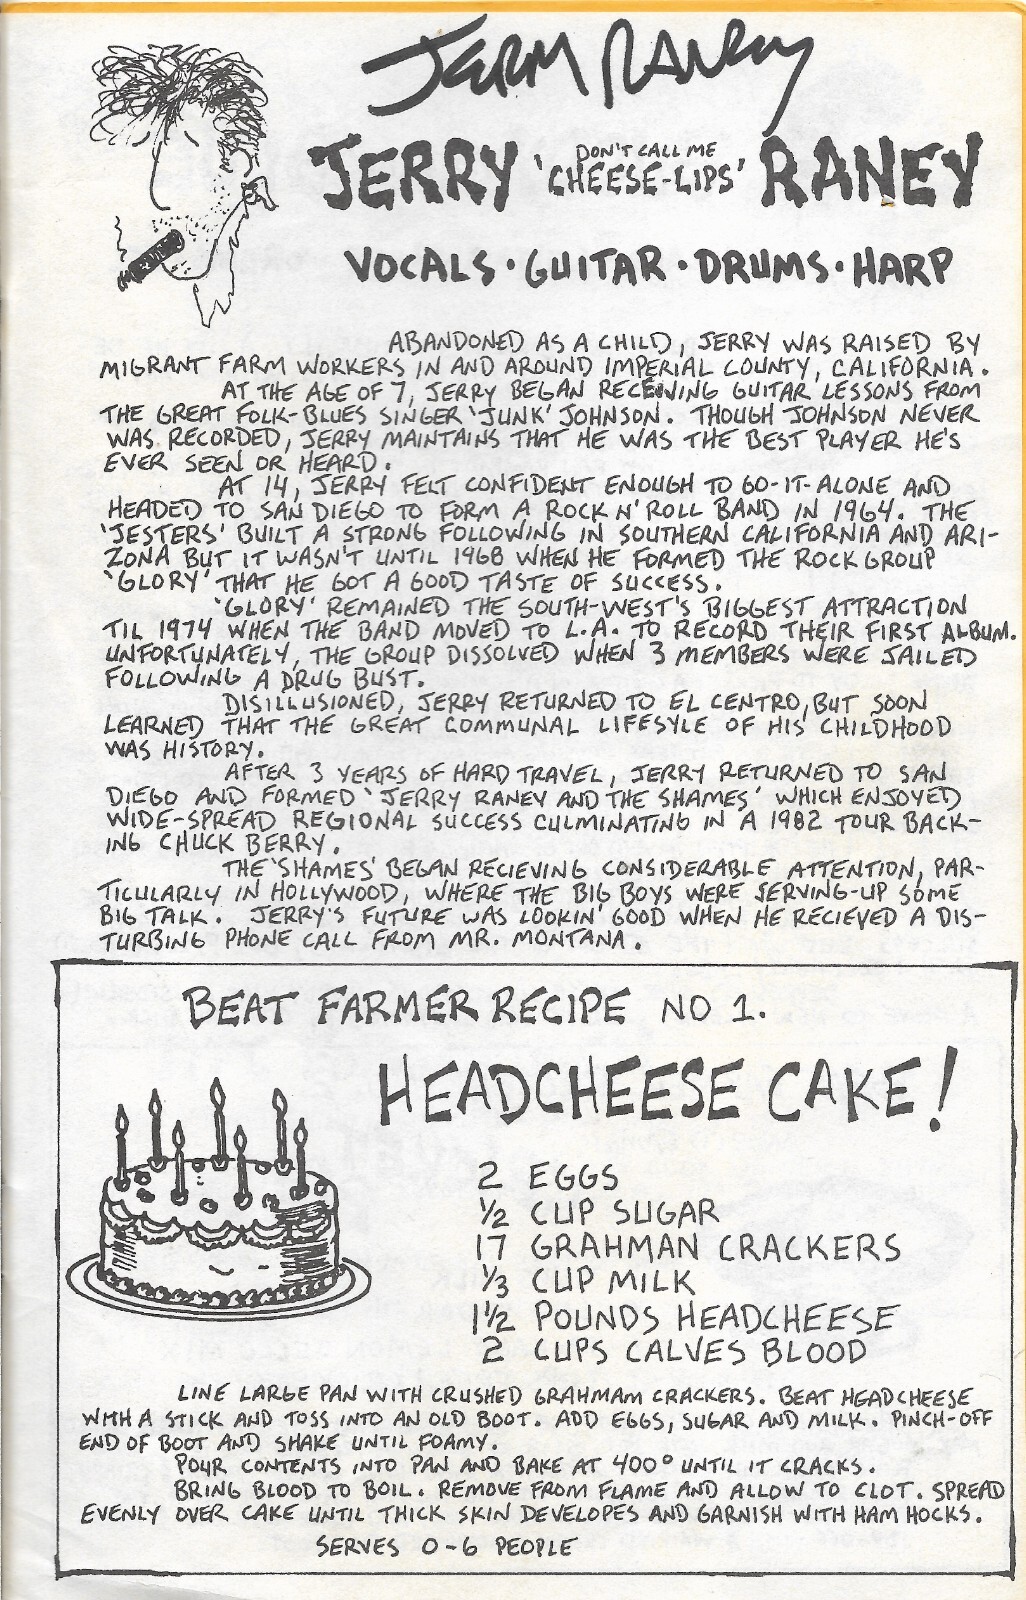 JERRY RANEY
JERRY DON'T CALL ME 'CHEESE-LIPS' RANEY
VOCALS · GUITAR · DRUMS · HARP
ABANDONED AS A CHILD, JERRY WAS RAISED BY
MIGRANT FARM WORKERS IN AND AROUND IMPERIAL COUNTY, CALIFORNIA.
AT THE AGE OF 7, JERRY BEGAN RECEIVING GUITAR LESSONS FROM
THE GREAT FOLK-BLUES SINGER 'JUNK' JOHNSON. THOUGH JOHNSON NEVER
WAS RECORDED, JERRY MAINTAINS THAT HE WAS THE BEST PLAYER HE'S
EVER SEEN OR HEARD.
AT 14, JERRY FELT CONFIDENT ENOUGH TO GO-IT-ALONE AND
HEADED TO SAN DIEGO TO FORM A ROCK N' ROLL BAND IN 1964. THE
'JESTERS' BUILT A STRONG FOLLOWING IN SOUTHERN CALIFORNIA AND ARI-
ZONA BUT IT WASN'T UNTIL 1968 WHEN HE FORMED THE ROCK GROUP
'GLORY' THAT HE GOT A GOOD TASTE OF SUCCESS.
'GLORY' REMAINED THE SOUTH-WEST'S BIGGEST ATTRACTION
TIL 1974 WHEN THE BAND MOVED TO L.A. TO RECORD THEIR FIRST ALBUM.
UNFORTUNATELY, THE GROUP DISSOLVED WHEN 3 MEMBERS WERE JAILED
FOLLOWING A DRUG BUST.
DISILLUSIONED, JERRY RETURNED TO EL CENTRO, BUT SOON
LEARNED THAT THE GREAT COMMUNAL LIFESYLE OF HIS CHILDHOOD
WAS HISTORY.
AFTER 3 YEARS OF HARD TRAVEL, JERRY RETURNED TO SAN
DIEGO AND FORMED 'JERRY RANEY AND THE SHAMES' WHICH ENJOYED
WIDE-SPREAD REGIONAL SUCCESS CULMINATING IN A 1982 TOUR BACK-
ING CHUCK BERRY.
THE 'SHAMES' BEGAN RECIEVING CONSIDERABLE ATTENTION, PAR-
TICULARLY IN HOLLYWOOD, WHERE THE BIG BOYS WERE SERVING-UP SOME
BIG TALK. JERRY'S FUTURE WAS LOOKIN' GOOD WHEN HE RECIEVED A DIS-
TURBING PHONE CALL FROM MR. MONTANA.
BEAT FARMER RECIPE NO 1.
HEADCHEESE CAKE!
2 EGGS
1/2 CUP SUGAR
17 GRAHMAN CRACKERS
1/3 CUP MILK
1 1/2 POUNDS HEADCHEESE
2 CUPS CALVES BLOOD
LINE LARGE PAN WITH CRUSHED GRAHMAM CRACKERS. BEAT HEADCHEESE
WITH A STICK AND TOSS INTO AN OLD BOOT. ADD EGGS, SUGAR AND MILK. PINCH-OFF
END OF BOOT AND SHAKE UNTIL FOAMY.
POUR CONTENTS INTO PAN AND BAKE AT 400° UNTIL IT CRACKS.
BRING BLOOD TO BOIL. REMOVE FROM FLAME AND ALLOW TO CLOT. SPREAD
EVENLY OVER CAKE UNTIL THICK SKIN DEVELOPES AND GARNISH WITH HAM HOCKS.
SERVES 0-6 PEOPLE